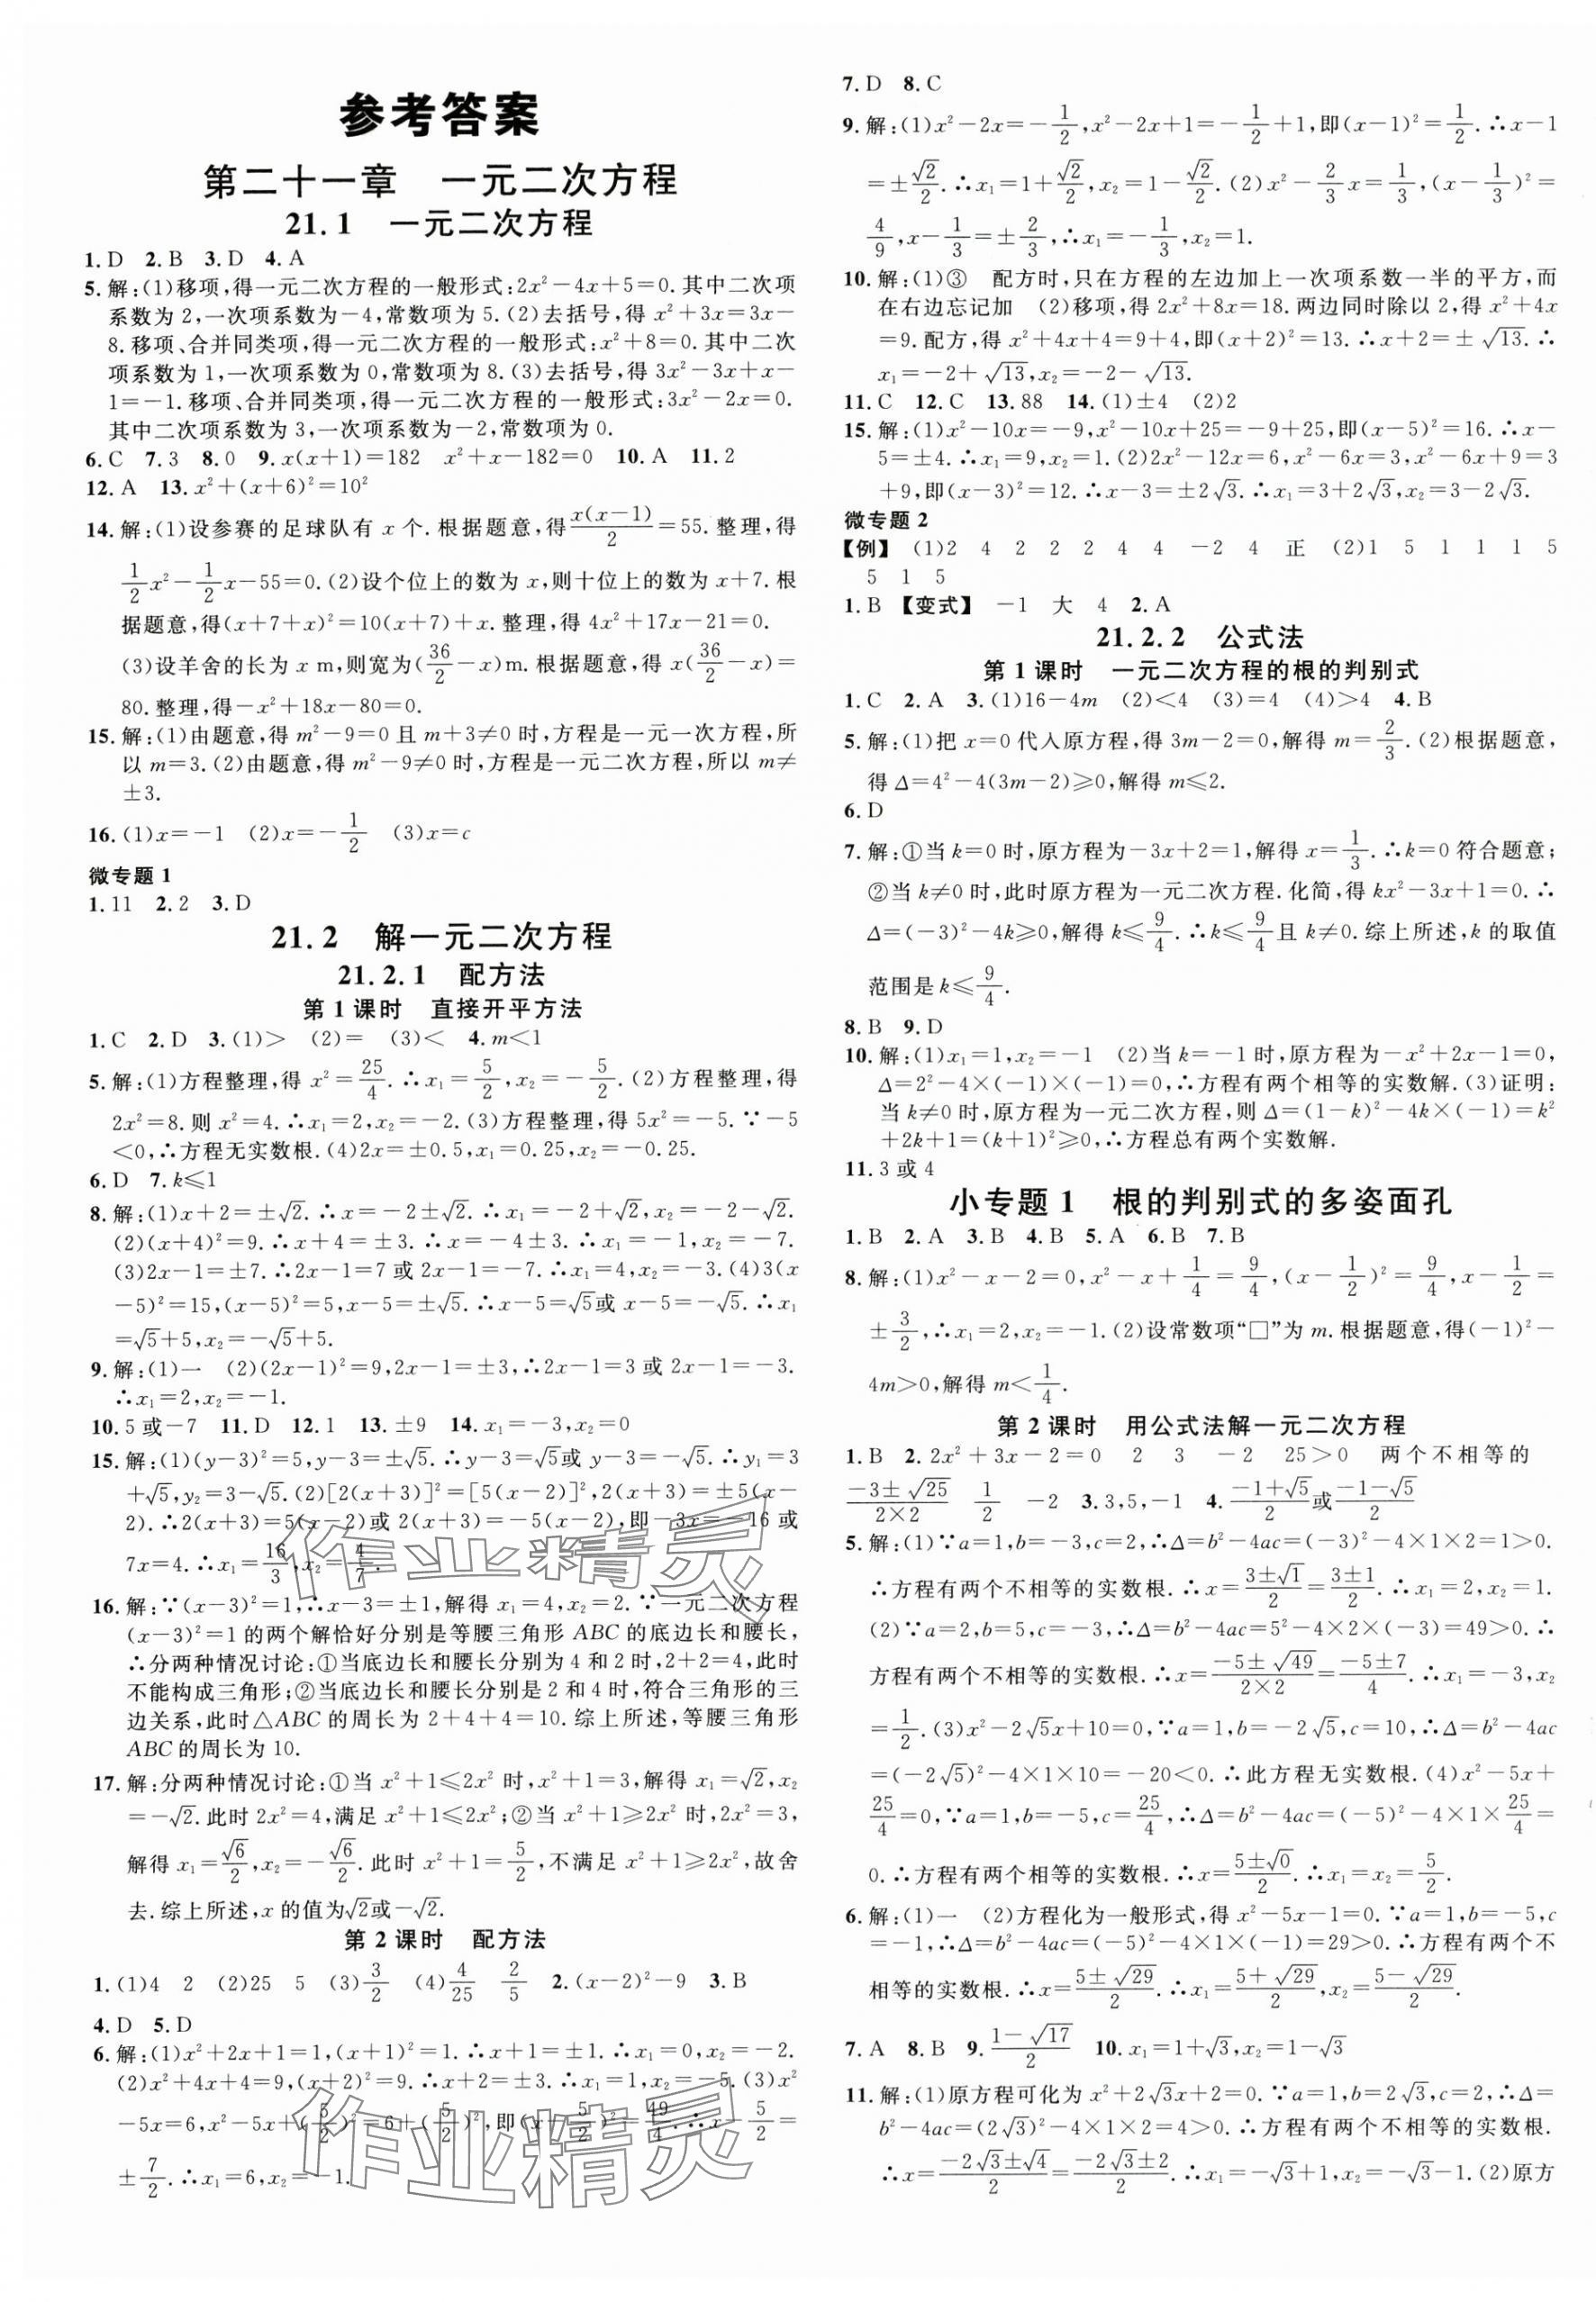 参考答案
第二十一章 一元二次方程
21.1 一元二次方程
1.D 2.B 3.D 4.A
5.解:(1)移项,得一元二次方程的一般形式:2x²-4x+5=0.其中二次项
系数为2,一次项系数为-4,常数项为5.(2)去括号,得 x²+3x=3x-
8.移项、合并同类项,得一元二次方程的一般形式:x²+8=0.其中二次
项系数为1,一次项系数为0,常数项为8.(3)去括号,得3x²-3x+x-
1=-1.移项、合并同类项,得一元二次方程的一般形式:3x²-2x=0.
其中二次项系数为3,一次项系数为-2,常数项为0.
6.C 7.3 8.0 9.x(x+1)=182 x²+x-182=0 10.A 11.2
12.A 13.x²+(x+6)²=10²
14.解:(1)设参赛的足球队有 x 个.根据题意,得x(x-1)/2=55.整理,得
1/2x²-1/2x-55=0.(2)设个位上的数为 x,则十位上的数为 x+7.根
据题意,得(x+7+x)²=10(x+7)+x.整理,得 4x²+17x-21=0.
(3)设羊舍的长为 x m,则宽为(36/2-x)m.根据题意,得 x(36/2-x)=
80.整理,得-x²+18x-80=0.
15.解:(1)由题意,得 m²-9=0且 m+3≠0时,方程是一元一次方程,所
以 m=3.(2)由题意,得 m²-9≠0时,方程是一元二次方程,所以 m≠
±3.
16.(1)x=-1 (2)x=-1/2 (3)x=c
微专题1
1.11 2.2 3.D
21.2 解一元二次方程
21.2.1 配方法
第1课时 直接开平方法
1.C 2.D 3.(1)> (2)= (3)< 4.m<1
5.解:(1)方程整理,得 x²=25/4.∴x₁=5/2,x₂=-5/2.(2)方程整理,得
2x²=8.则 x²=4.∴x₁=2,x₂=-2.(3)方程整理,得5x²=-5.∵-5
<0,∴方程无实数根.(4)2x=±0.5,x₁=0.25,x₂=-0.25.
6.D 7.k≤1
8.解:(1)x+2=±√2.∴x=-2±√2.∴x₁=-2+√2,x₂=-2-√2.
(2)(x+4)²=9.∴x+4=±3.∴x=-4±3.∴x₁=-1,x₂=-7.
(3)2x-1=±7.∴2x-1=7或2x-1=-7.∴x₁=4,x₂=-3.(4)3(x
-5)²=15,(x-5)²=5,x-5=±√5.∴x-5=√5或 x-5=-√5.∴x₁
=√5+5,x₂=-√5+5.
9.解:(1)一 (2)(2x-1)²=9,2x-1=±3,∴2x-1=3或2x-1=-3.
∴x₁=2,x₂=-1.
10.5或-7 11.D 12.1 13.±9 14.x₁=-3,x₂=0
15.解:(1)(y-3)²=5,y-3=±√5.∴y-3=√5或 y-3=-√5.∴y₁=3
+√5,y₂=3-√5.(2)[2(x+3)]²=[5(x-2)]²,2(x+3)=±5(x-
2).∴2(x+3)=5(x-2)或2(x+3)=-5(x-2),即-3x=-16或
7x=4.∴x₁=16/3,x₂=4/7.
16.解:∵(x-3)²=1,∴x-3=±1,解得 x₁=4,x₂=2.∵一元二次方程
(x-3)²=1的两个解恰好分别是等腰三角形 ABC 的底边长和腰长,
∴分两种情况讨论:①当底边长和腰长分别为4和2时,2+2=4,此时
不能构成三角形;②当底边长和腰长分别是2和4时,符合三角形的三
边关系,此时△ABC 的周长为2+4+4=10.综上所述,等腰三角形
ABC 的周长为10.
17.解:分两种情况讨论:①当 x²+1≤2x² 时,x²+1=3,解得 x₁=√2,x₂
=-√2.此时2x²=4,满足 x²+1≤2x²;②当 x²+1≥2x² 时,2x²=3,
解得 x₁=√6/2,x₂=-√6/2.此时 x²+1=5/2,不满足 x²+1≥2x²,故舍
去.综上所述,x 的值为√2或-√2.
第2课时 配方法
1.(1)4 2 (2)25 5 (3)3/2 (4)4/25 2/5 2.(x-2)²-9 3.B
4.D 5.D
6.解:(1)x²+2x+1=1,(x+1)²=1.∴x+1=±1.∴x₁=0,x₂=-2.
(2)x²+4x+4=9,(x+2)²=9.∴x+2=±3.∴x₁=1,x₂=-5.(3)x²
-5x=6,x²-5x+(5/2)²=6+(5/2)²,即(x-5/2)²=49/4.∴x-5/2=
±7/2.∴x₁=6,x₂=-1.
7.D 8.C
9.解:(1)x²-2x=-1/2,x²-2x+1=-1/2+1,即(x-1)²=1/2.∴x-1
=±√2/2.∴x₁=1+√2/2,x₂=1-√2/2.(2)x²-2/3x=1/3,(x-1/3)²=
4/9,x-1/3=±2/3,∴x₁=-1/3,x₂=1.
10.解:(1)③ 配方时,只在方程的左边加上一次项系数一半的平方,而
在右边忘记加 (2)移项,得2x²+8x=18.两边同时除以2,得 x²+4x
=9.配方,得 x²+4x+4=9+4,即(x+2)²=13.∴x+2=±√13.∴
x₁=-2+√13,x₂=-2-√13.
11.C 12.C 13.88 14.(1)±4 (2)2
15.解:(1)x²-10x=-9,x²-10x+25=-9+25,即(x-5)²=16.∴x-
5=±4.∴x₁=9,x₂=1.(2)2x²-12x=6,x²-6x=3,x²-6x+9=3
+9,即(x-3)²=12.∴x-3=±2√3.∴x₁=3+2√3,x₂=3-2√3.
微专题2
【例】 (1)2 4 2 2 2 4 4 -2 4 正 (2)1 5 1 1 1 5
5 1 5
1.B 【变式】 -1 大 4 2.A
21.2.2 公式法
第1课时 一元二次方程的根的判别式
1.C 2.A 3.(1)16-4m (2)<4 (3)=4 (4)>4 4.B
5.解:(1)把 x=0代入原方程,得3m-2=0,解得 m=2/3.(2)根据题意,
得Δ=4²-4(3m-2)≥0,解得 m≤2.
6.D
7.解:①当 k=0时,原方程为-3x+2=1,解得 x=1/3.∴k=0符合题意;
②当 k≠0时,此时原方程为一元二次方程.化简,得 kx²-3x+1=0.∴
Δ=(-3)²-4k≥0,解得 k≤9/4.∴k≤9/4且 k≠0.综上所述,k 的取值
范围是 k≤9/4.
8.B 9.D
10.解:(1)x₁=1,x₂=-1 (2)当 k=-1时,原方程为-x²+2x-1=0,
Δ=2²-4×(-1)×(-1)=0,∴方程有两个相等的实数解.(3)证明:
当 k≠0时,原方程为一元二次方程,则Δ=(1-k)²-4k×(-1)=k²
+2k+1=(k+1)²≥0,∴方程总有两个实数解.
11.3或4
小专题1 根的判别式的多姿面孔
1.B 2.A 3.B 4.B 5.A 6.B 7.B
8.解:(1)x²-x-2=0,x²-x+1/4=9/4,(x-1/2)²=9/4,x-1/2=
±3/2,∴x₁=2,x₂=-1.(2)设常数项“□”为 m.根据题意,得(-1)²-
4m>0,解得 m<1/4.
第2课时 用公式法解一元二次方程
1.B 2.2x²+3x-2=0 2 3 -2 25>0 两个不相等的
(-3±√25)/(2×2) 1/2 -2 3.3,5,-1 4.(-1+√5)/2或(-1-√5)/2
5.解:(1)∵a=1,b=-3,c=2,∴Δ=b²-4ac=(-3)²-4×1×2=1>0.
∴方程有两个不相等的实数根.∴x=(3±√1)/2=(3±1)/2.∴x₁=2,x₂=1.
(2)∵a=2,b=5,c=-3,∴Δ=b²-4ac=5²-4×2×(-3)=49>0.∴
方程有两个不相等的实数根.∴x=(-5±√49)/(2×2)=(-5±7)/4.∴x₁=-3,x₂
=1/2.(3)x²-2√5x+10=0,∵a=1,b=-2√5,c=10,∴Δ=b²-4ac
=(-2√5)²-4×1×10=-20<0.∴此方程无实数根.(4)x²-5x+
25/4=0,∵a=1,b=-5,c=25/4,∴Δ=b²-4ac=(-5)²-4×1×25/4=
0.∴方程有两个相等的实数根.∴x=(5±√0)/2.∴x₁=x₂=5/2.
6.解:(1)一 (2)方程化为一般形式,得 x²-5x-1=0.∵a=1,b=-5,c
=-1,∴Δ=b²-4ac=(-5)²-4×1×(-1)=29>0.∴方程有两个不
相等的实数根.∴x=(5±√29)/2.∴x₁=(5+√29)/2,x₂=(5-√29)/2.
7.A 8.B 9.(1-√17)/2 10.x₁=1+√3,x₂=1-√3
11.解:(1)原方程可化为 x²+2√3x+2=0.∵a=1,b=2√3,c=2,∴Δ=
b²-4ac=(2√3)²-4×1×2=4>0.∴方程有两个不相等的实数根.
∴x=(-2√3±√4)/2=(-2√3±2)/2.∴x₁=-√3+1,x₂=-√3-1.(2)原方
作业精灵
作业精灵